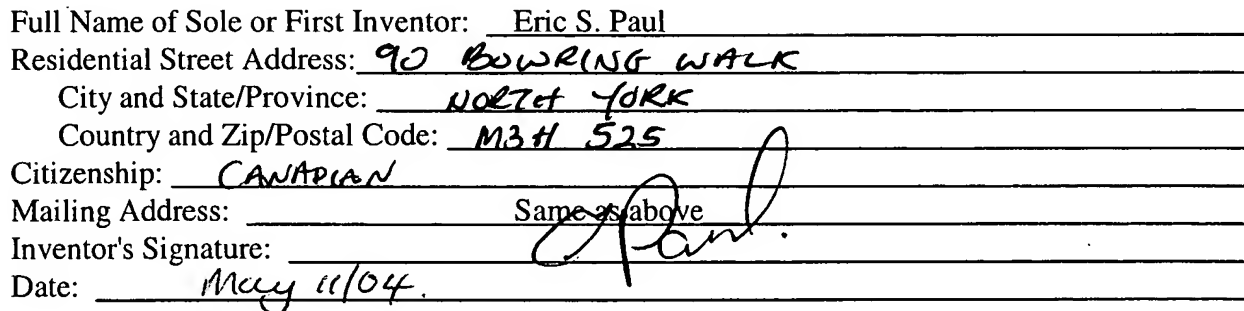 Full Name of Sole or First Inventor: Eric S. Paul
Residential Street Address: 90 BOWRING WALK
City and State/Province: NORTH YORK
Country and Zip/Postal Code: M3H 525
Citizenship: CANADIAN
Mailing Address: Same as above
Inventor's Signature: Paul.
Date: May 11/04.